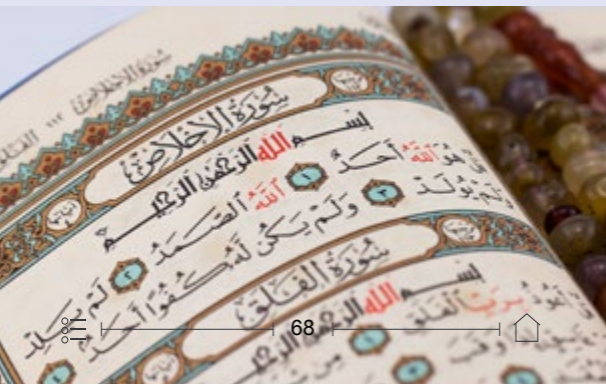 سُورَةُ الإِخْلَاصِ ١١٢
سُورَةُ الإِخْلَاصِ
بِسْمِ اللَّهِ الرَّحْمَٰنِ الرَّحِيمِ
قُلْ هُوَ اللَّهُ أَحَدٌ ١ اللَّهُ الصَّمَدُ ٢ لَمْ يَلِدْ
وَلَمْ يُولَدْ ٣ وَلَمْ يَكُن لَّهُ كُفُوًا أَحَدٌ ٤
سُورَةُ الْفَلَقِ
بِسْمِ اللَّهِ الرَّحْمَٰنِ الرَّحِيمِ
أَعُوذُ بِرَبِّ الْفَلَقِ ١ مِن شَرِّ
وَقَبَ
68